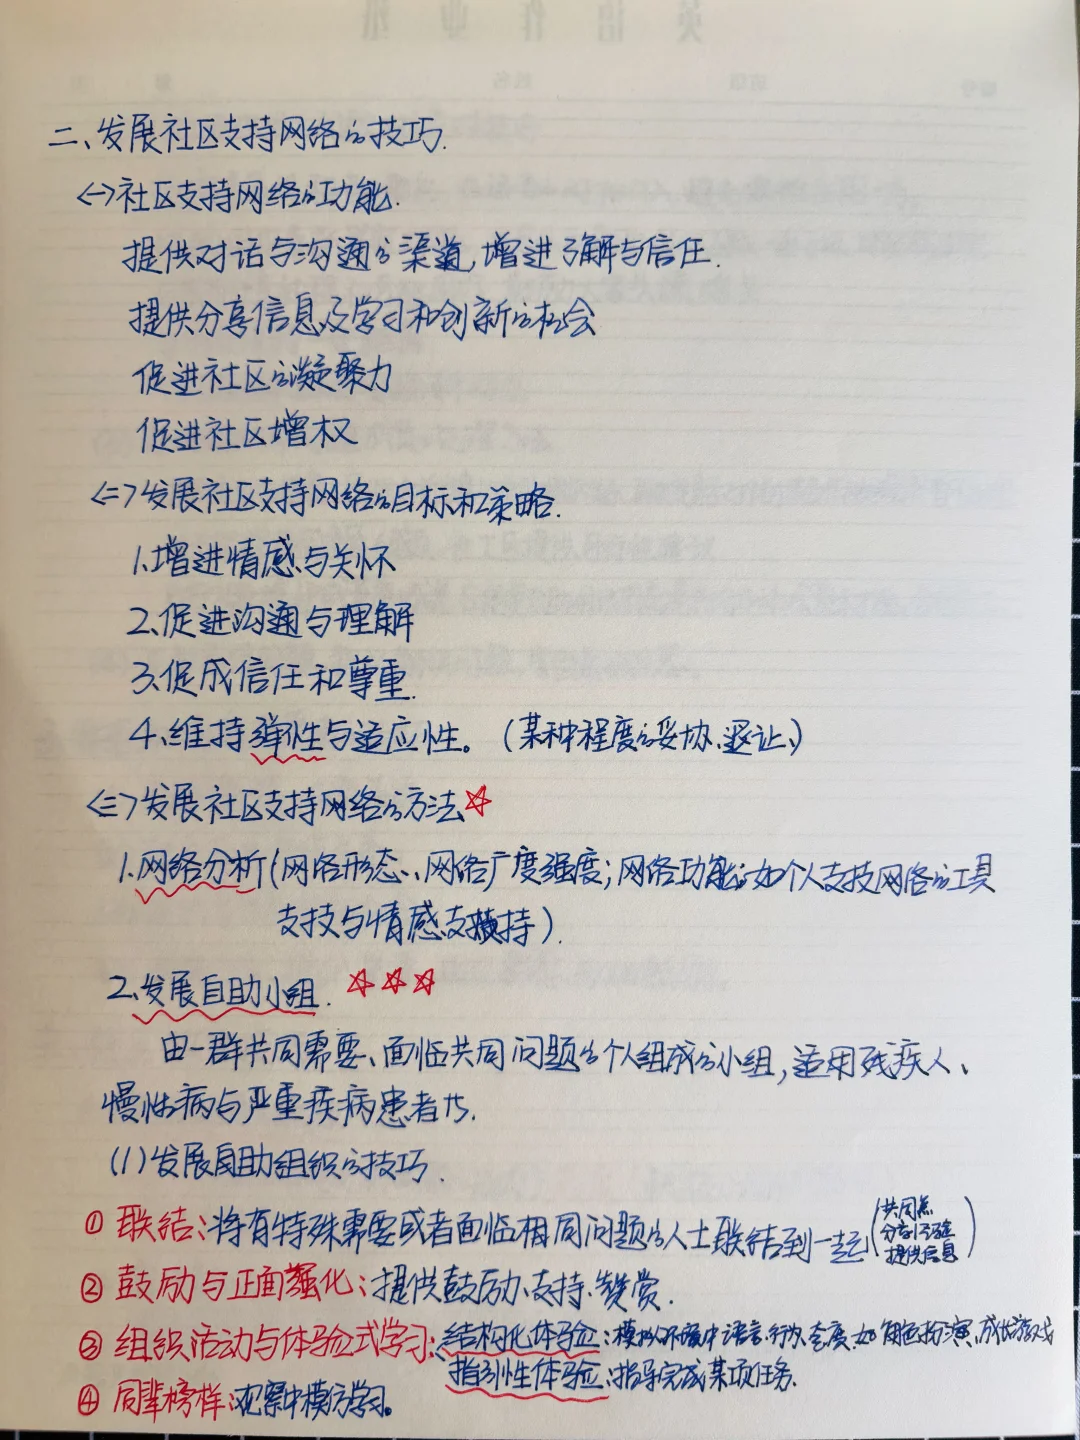 二、发展社区支持网络的技巧.
<一>社区支持网络的功能.
提供对话与沟通的渠道,增进了解与信任.
提供分享信息及学习和创新的机会
促进社区的凝聚力
促进社区增权
<二>发展社区支持网络的目标和策略.
1.增进情感与关怀
2.促进沟通与理解
3.促成信任和尊重.
4.维持弹性与适应性。(某种程度的妥协、退让、)
<三>发展社区支持网络的方法☆
1.网络分析(网络形态、、网络广度强度;网络功能:如个人支技网络的工具
支技与情感支持).
2.发展自助小组. ☆☆☆
由一群共同需要、面临共同问题的个人组成的小组,适用残疾人、
慢性病与严重疾病患者ちち.
(1)发展自助组织的技巧.
①联结:将有特殊需要或者面临相同问题的人士联结到一起(共同点
分享经验
提供信息)
②鼓励与正面强化:提供鼓励、支持、赞赏.
③组织活动与体验式学习:结构化体验:模拟环境中语言、行为、态度.如角色扮演、成长游戏
指引性体验:指导完成某项任务.
④同辈榜样:观察中模仿学习。